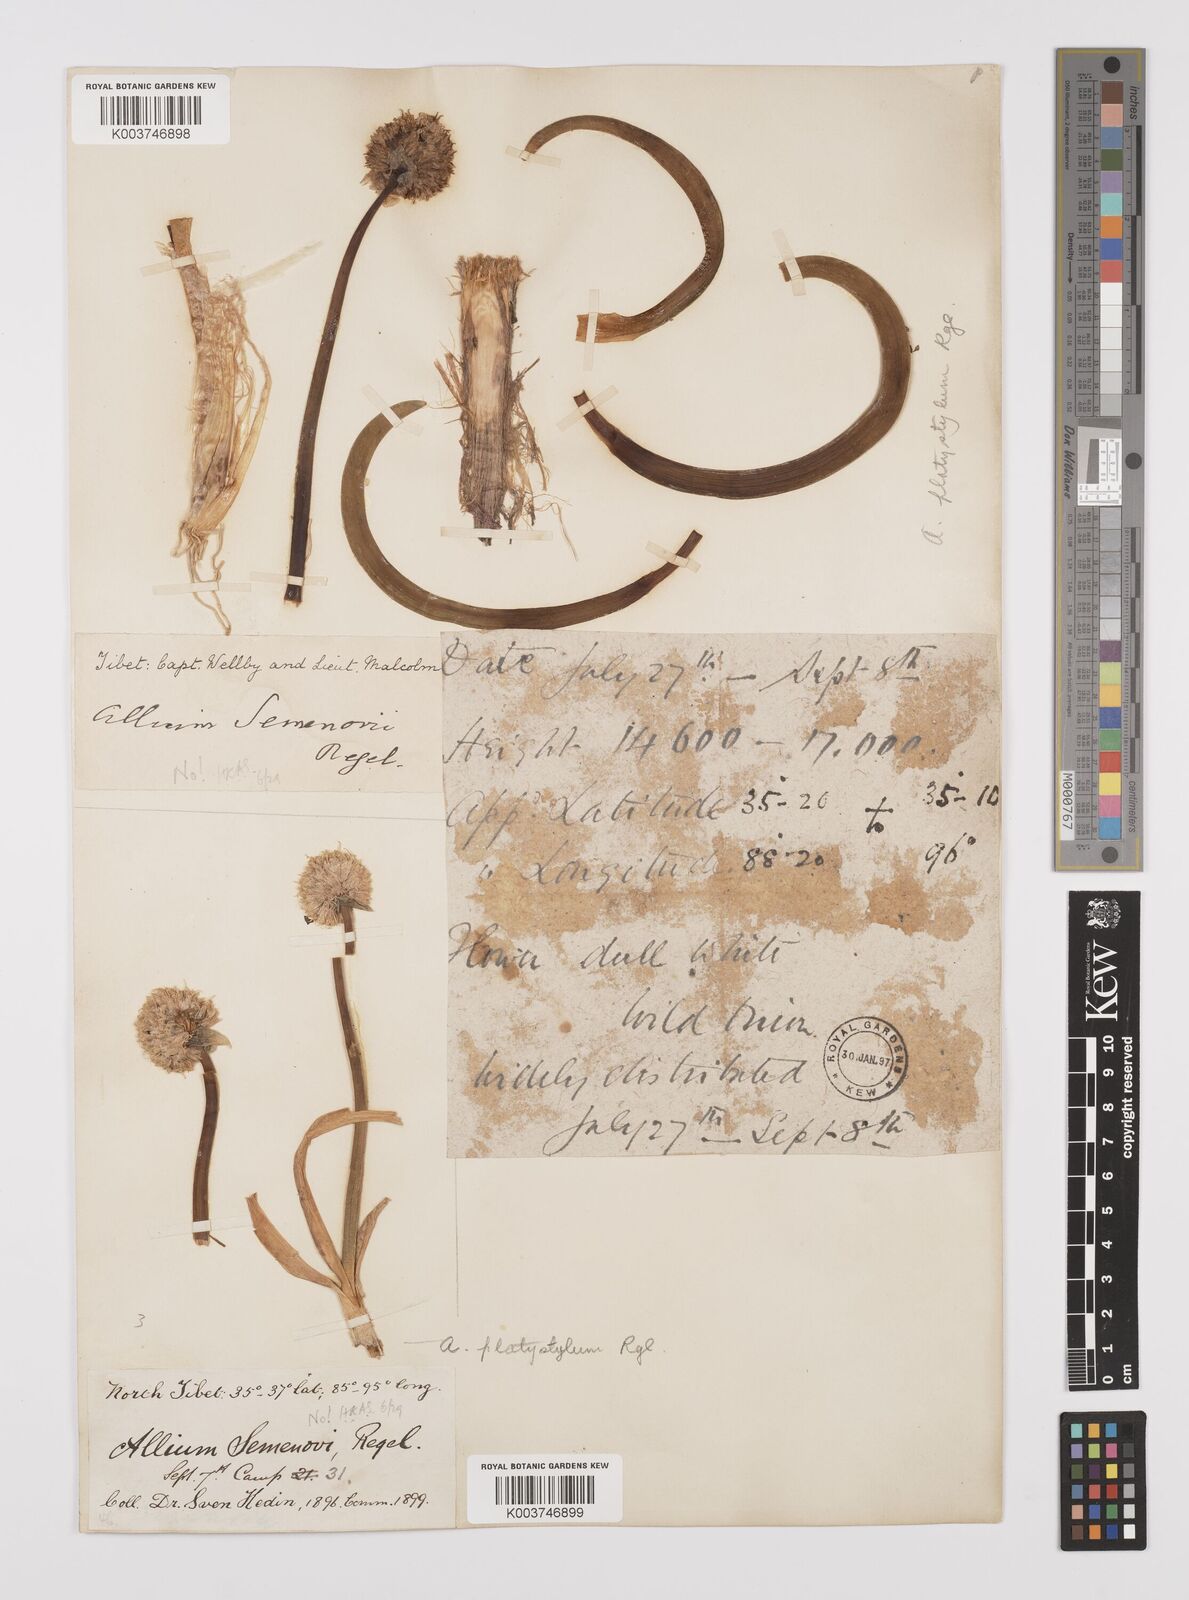 ROYAL BOTANIC GARDENS KEW
K003746898
A. platystylum Rge.
Tibet: Capt. Wellby and Lieut. Malcolm
Allium Semenovii
Regel.
No! HKAS 6/29
Date July 27th — Sept 8th
Height 14600 — 17.000.
App. Latitude 35°-20 to 35°-10
" Longitude 88°20 96°
Flower dull white
Wild Onion.
Widely distributed
July 27th — Sept 8th
ROYAL GARDENS
30 JAN. 97
KEW
3
A. platystylum Rgl.
North Tibet: 35°-37° lat; 85°-95° long.
No! HKAS 6/29
Allium Semenovi, Regel.
Sept. 7th Camp 21. 31.
Coll. Dr. Sven Hedin, 1896. Comm. 1899.
ROYAL BOTANIC GARDENS KEW
K003746899
inches
centimeters
Density
Don Williams
M000767
Royal Botanic Gardens
Kew
copyright reserved
0 1 2 3 4 5 6 7 8 9 10
cm